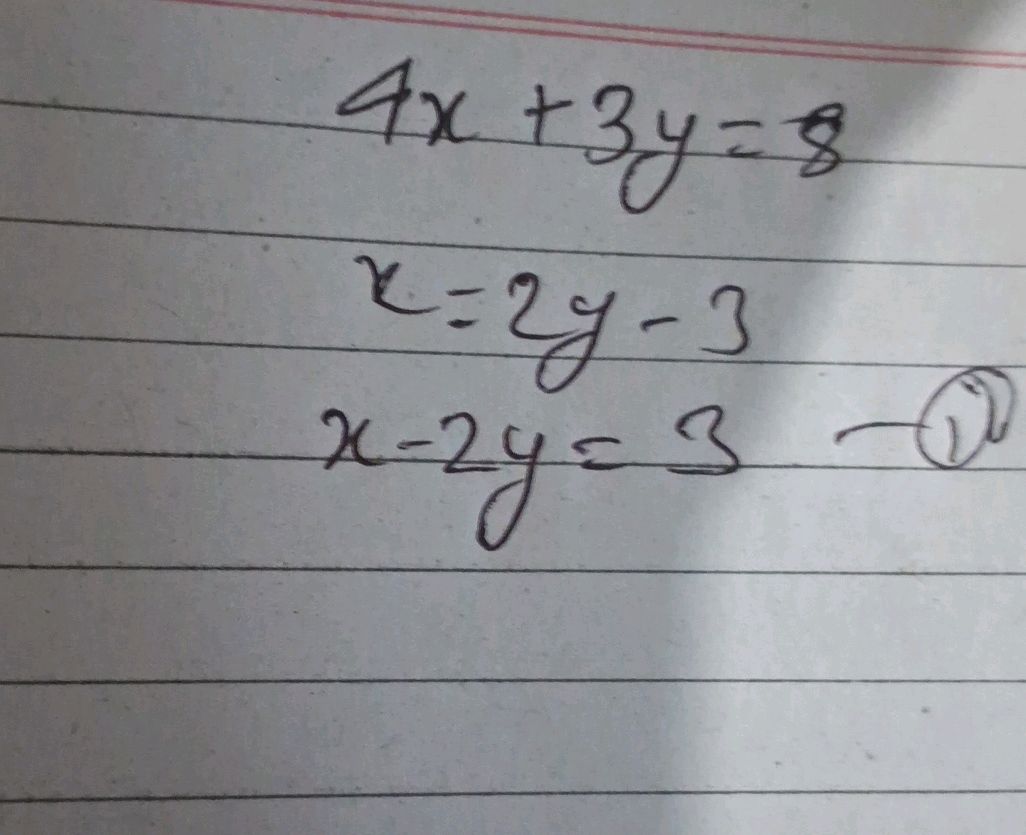 4x + 3y = 8
x = 2y - 3
x - 2y = 3 — ①